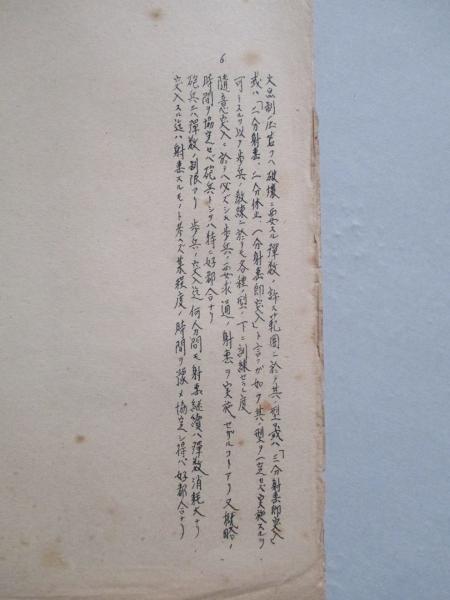 6
火点制圧若クハ破壊ニ要スル弾数ノ許ス範囲ニ於テ其ノ型ヲ或ハ「三分射撃即突入」
或ハ「二分射撃、二分休止、一分射撃即突入」ト言フガ如ク其ノ型ヲ一定セバ実施スルヲ
可トスルヲ以テ歩兵ノ教練ニ於テモ各種ノ型ノ下ニ訓練セラレ度
随意突入ニ於テハ必ズシモ歩兵ノ要求通ノ射撃ヲ実施セザルコトアリ又概略ノ
時間ヲ協定セバ砲兵トシテハ特ニ好都合ナリ
砲兵ニハ弾数ノ制限アリ 歩兵ノ突入迄何分間モ射撃継続ハ弾数消耗大ナリ
突入スル迄ハ射撃スルモノト考ヘズ某程度ノ時間ヲ予メ協定シ得バ好都合ナリ